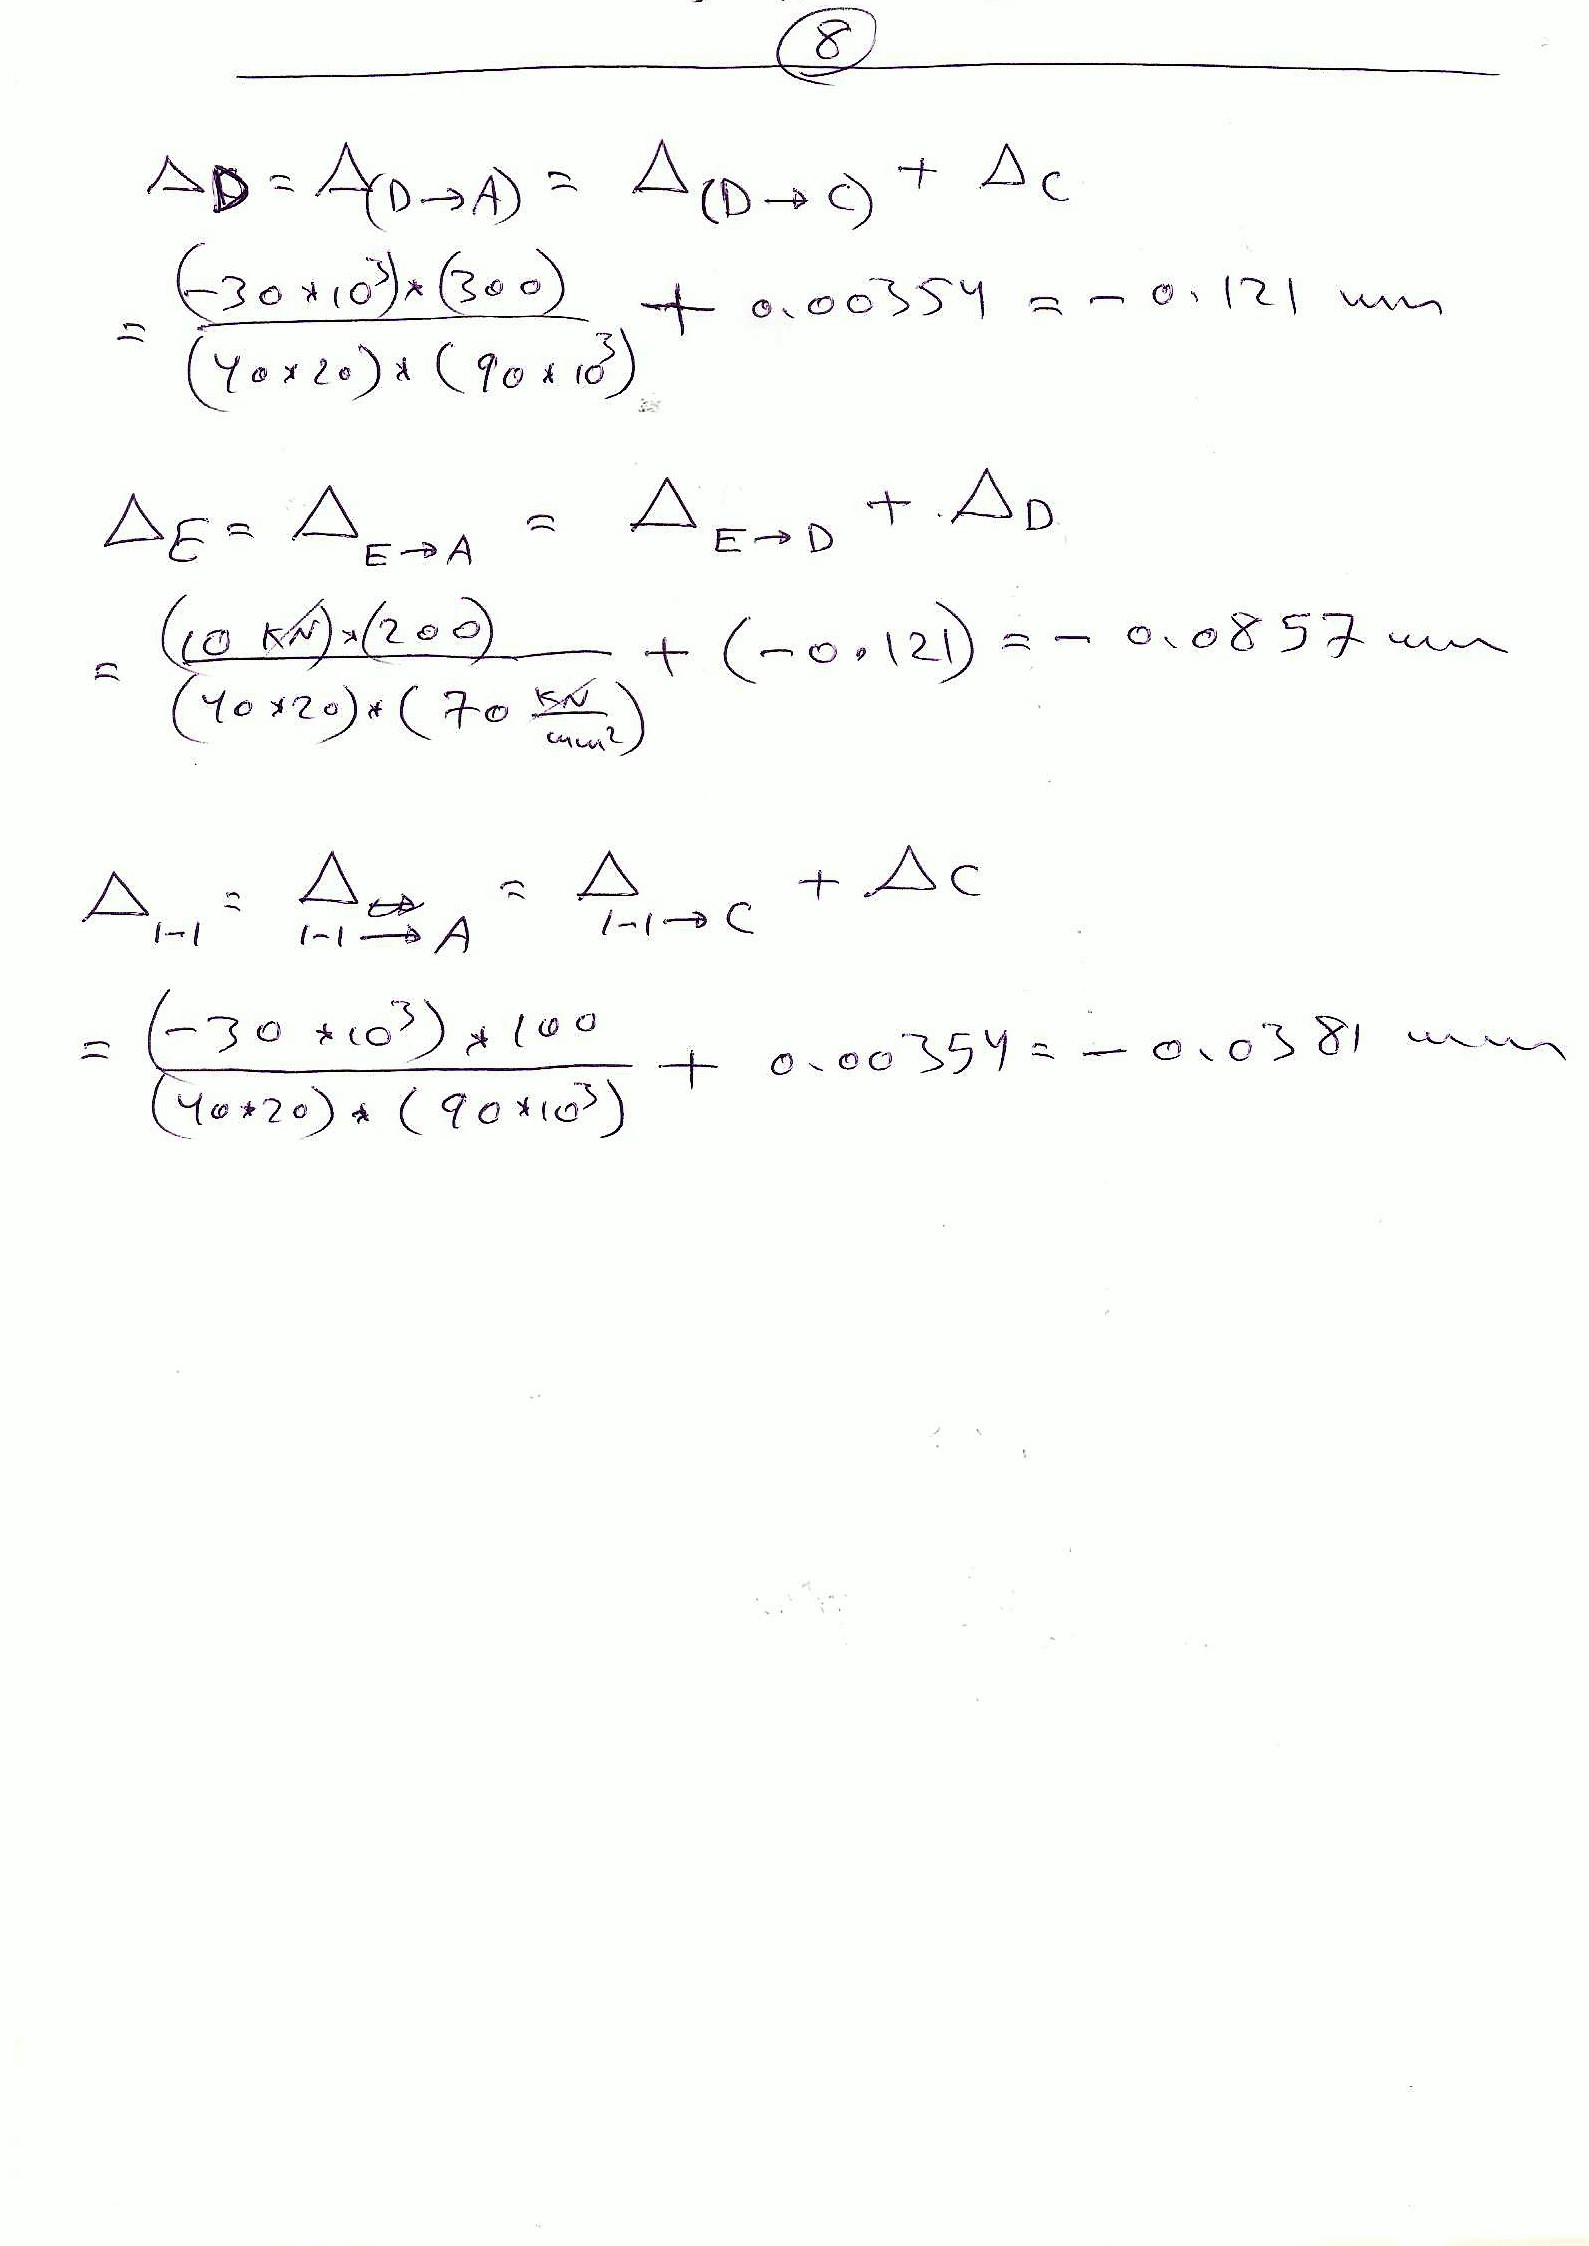 8
ΔD = Δ(D→A) = Δ(D→C) + ΔC
= (-30*10³)*(300) / (40*20)*(90*10³) + 0.00354 = -0.121 mm
ΔE = ΔE→A = ΔE→D + ΔD
= (10 KN)*(200) / (40*20)*(70 KN/mm²) + (-0.121) = -0.0857 mm
Δ1-1 = Δ1-1→A = Δ1-1→C + ΔC
= (-30*10³)*100 / (40*20)*(90*10³) + 0.00354 = -0.0381 mm